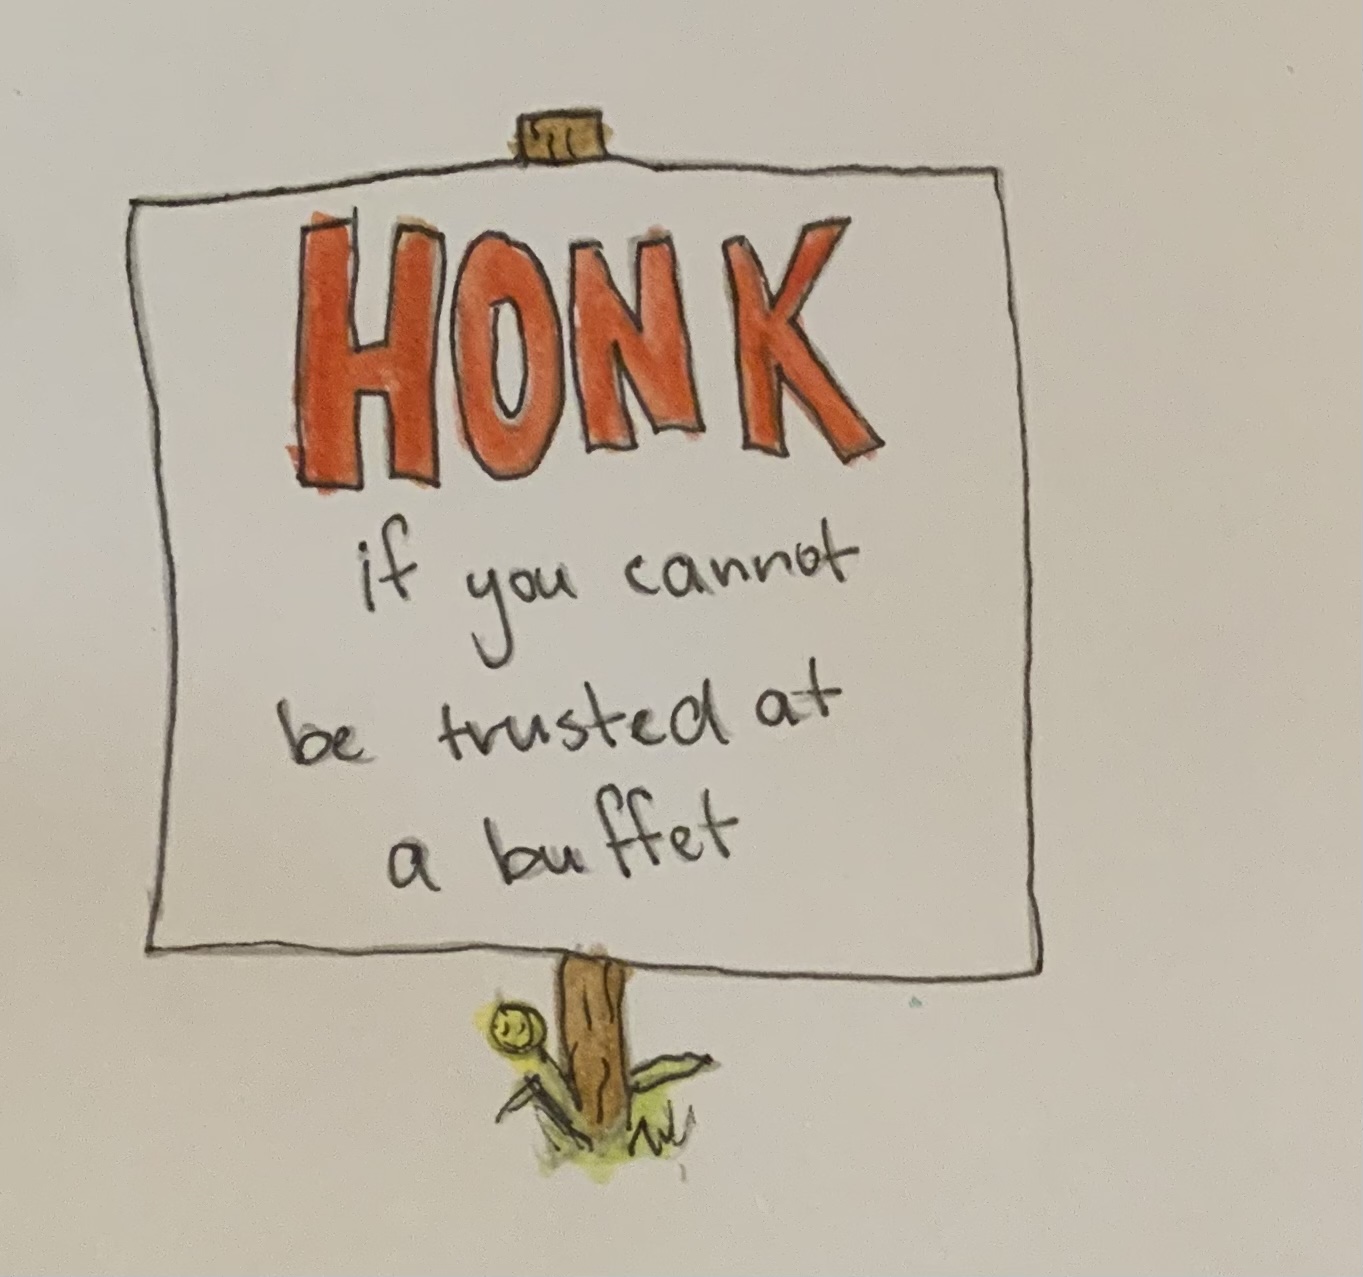 HONK
if you cannot
be trusted at
a buffet